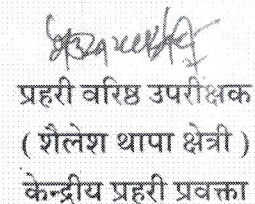 प्रहरी वरिष्ठ उपरीक्षक
( शैलेश थापा क्षेत्री )
केन्द्रीय प्रहरी प्रवक्ता